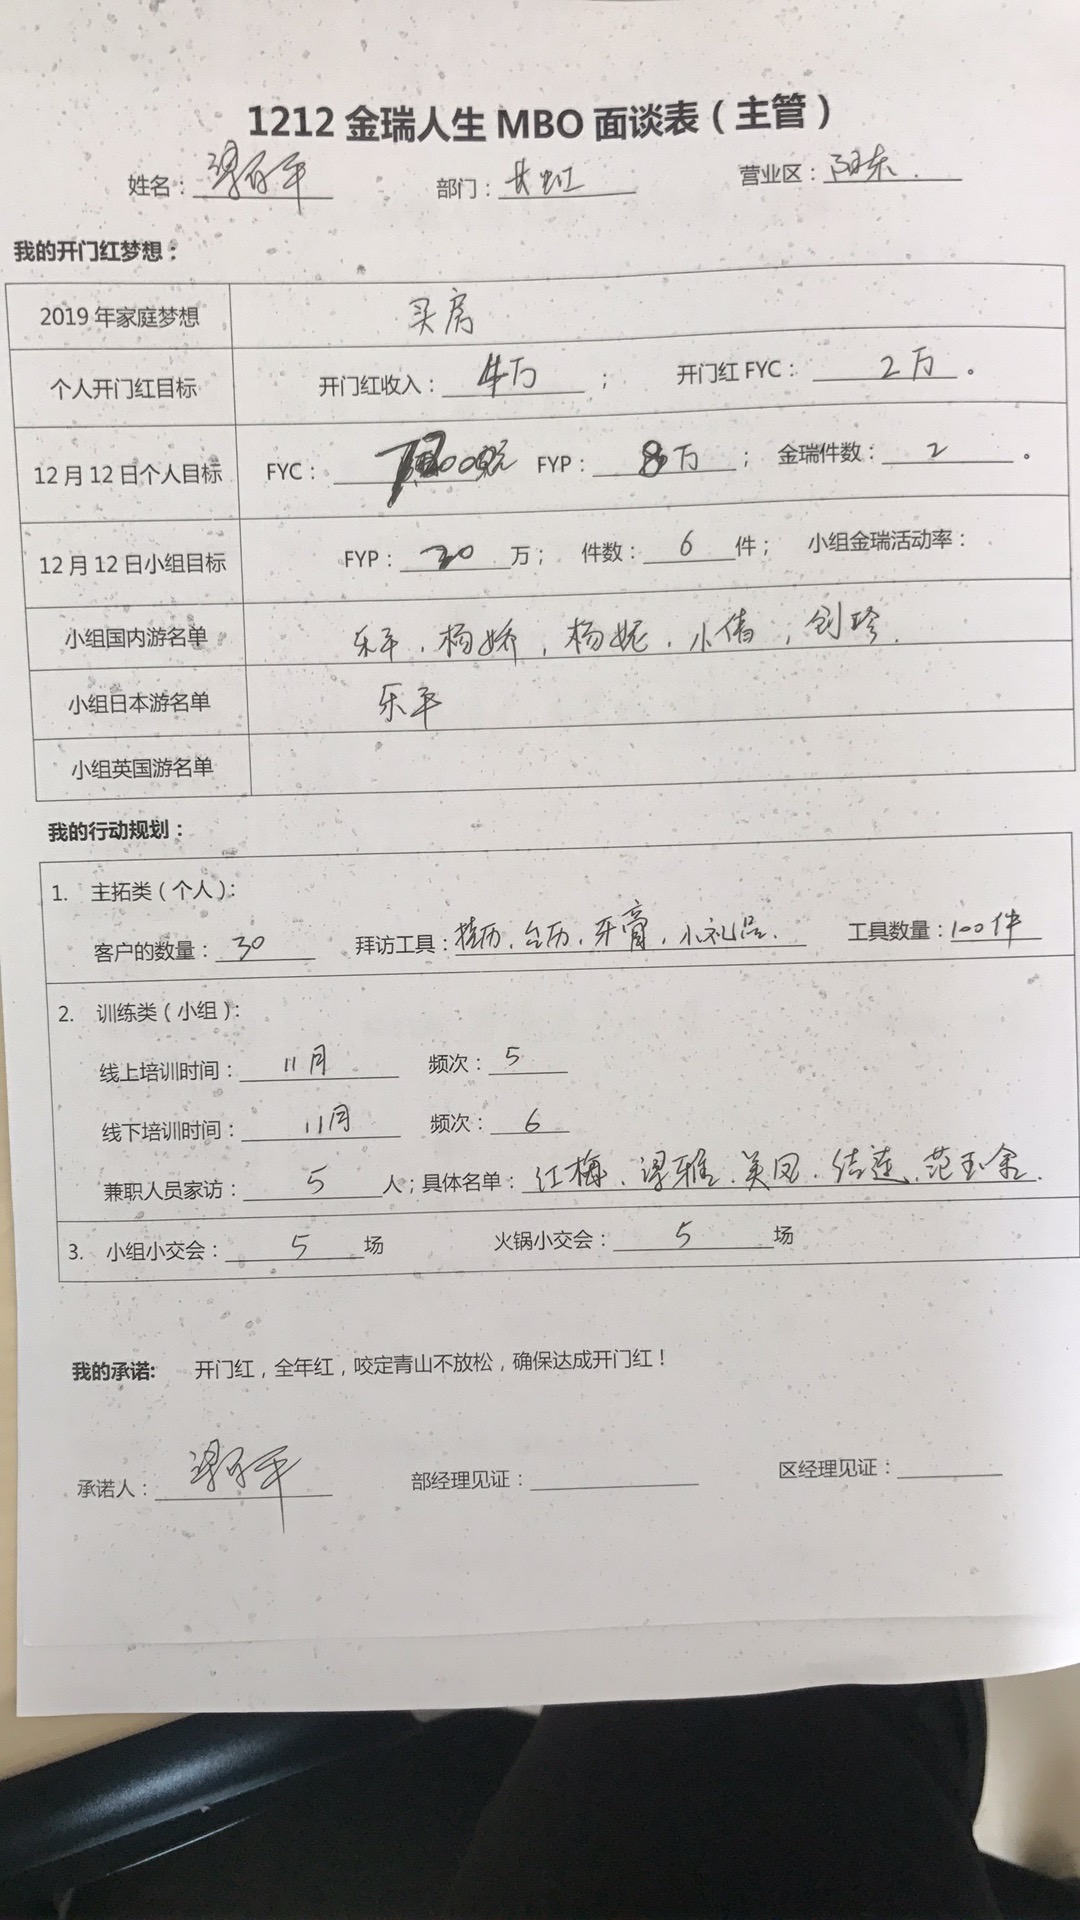 1212 金瑞人生 MBO 面谈表（主管）
姓名： 部门：长虹 营业区：阳东.
我的开门红梦想：
2019 年家庭梦想 买房
个人开门红目标 开门红收入：4万； 开门红 FYC：2万。
12 月 12 日个人目标 FYC： FYP：8万； 金瑞件数：2。
12 月 12 日小组目标 FYP：30万； 件数：6件； 小组金瑞活动率：
小组国内游名单 乐平.杨娇,杨妮.小倩,刘珍.
小组日本游名单 乐平
小组英国游名单
我的行动规划：
1. 主拓类（个人）：
客户的数量：30 拜访工具：挂历.台历.牙膏.小礼品. 工具数量：100件
2. 训练类（小组）：
线上培训时间：11月 频次：5
线下培训时间：11月 频次：6
兼职人员家访：5人；具体名单：红梅.谭雅.美凤.结莲.范玉金.
3. 小组小交会：5场 火锅小交会：5场
我的承诺: 开门红，全年红，咬定青山不放松，确保达成开门红！
承诺人： 部经理见证： 区经理见证：